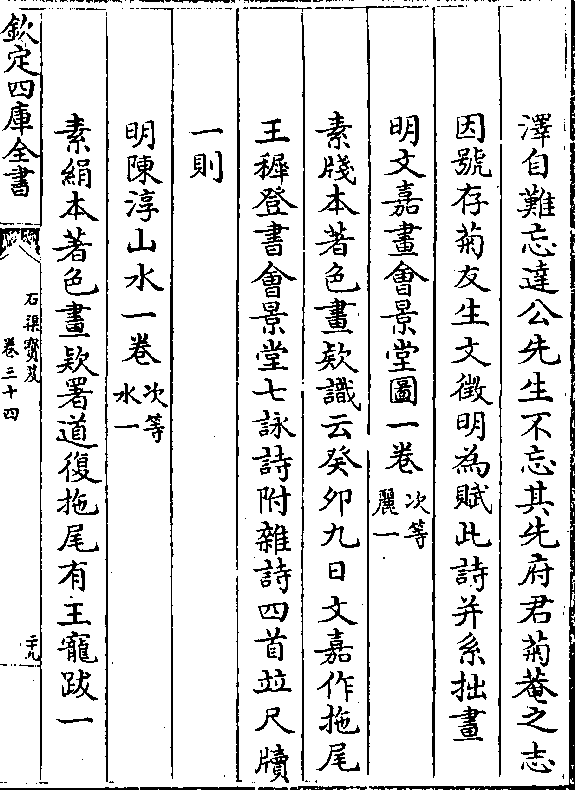 澤自難忘達公先生不忘其先府君菊菴之志
因號存菊友生文徴明為賦此詩并系拙畫
明文嘉畫會景堂圖一卷次等麗一
素牋本著色畫欵識云癸卯九日文嘉作拖尾
王穉登書會景堂七詠詩附雜詩四首並尺牘
一則
明陳淳山水一卷次等水一
素絹本著色畫欵署道復拖尾有王寵跋一
欽定四庫全書
石渠寳笈
卷三十四
二十九